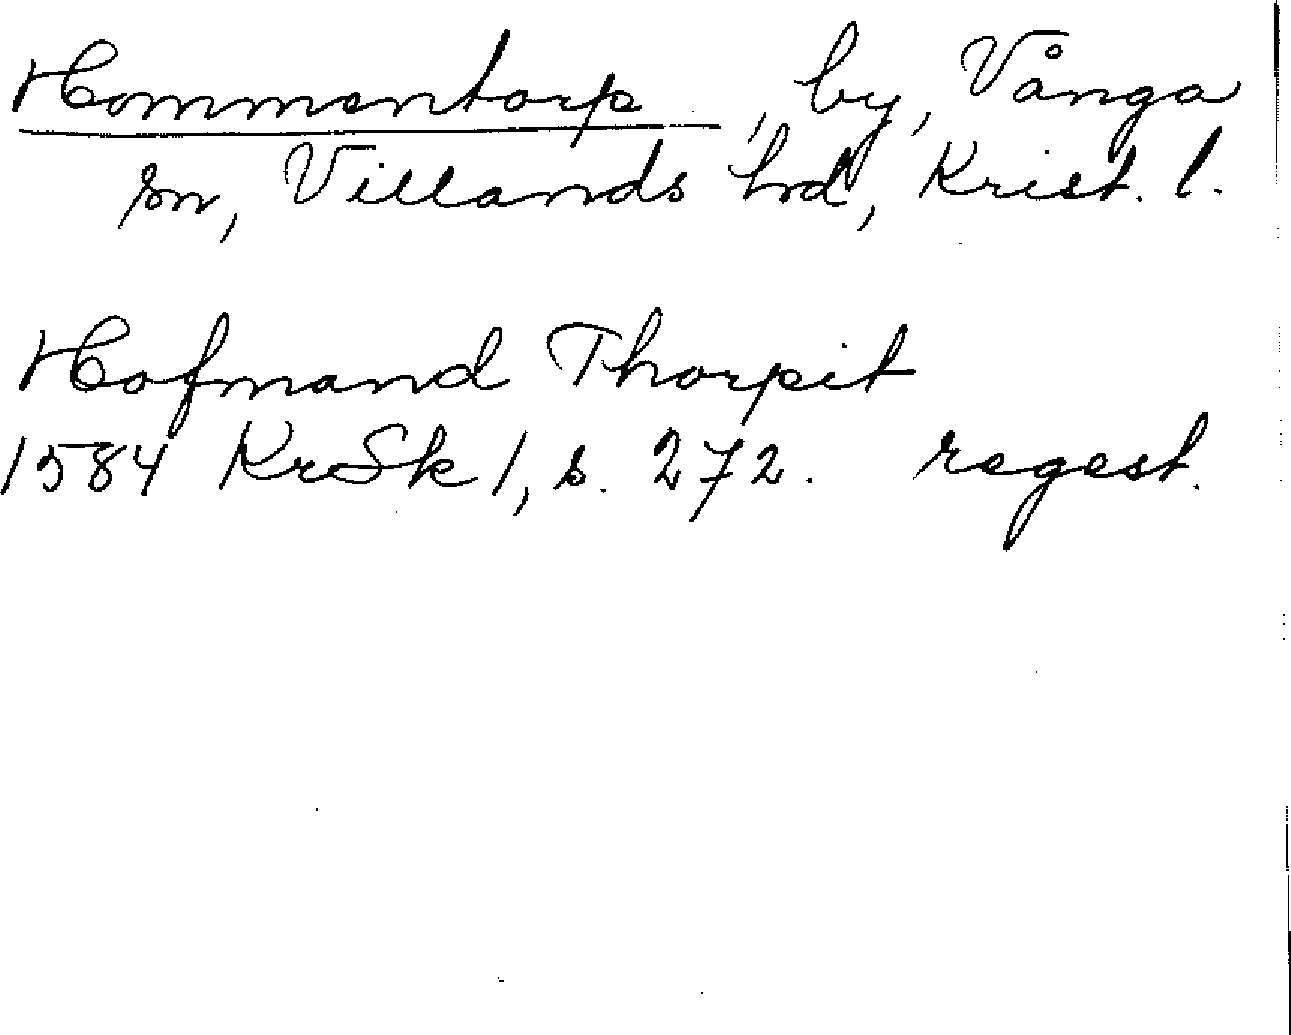 Hommentorp, by, Vånga
sn, Villands hd, Krist. l.
Hofmand Thorpit
1584 KrSk 1, s. 272. regest.